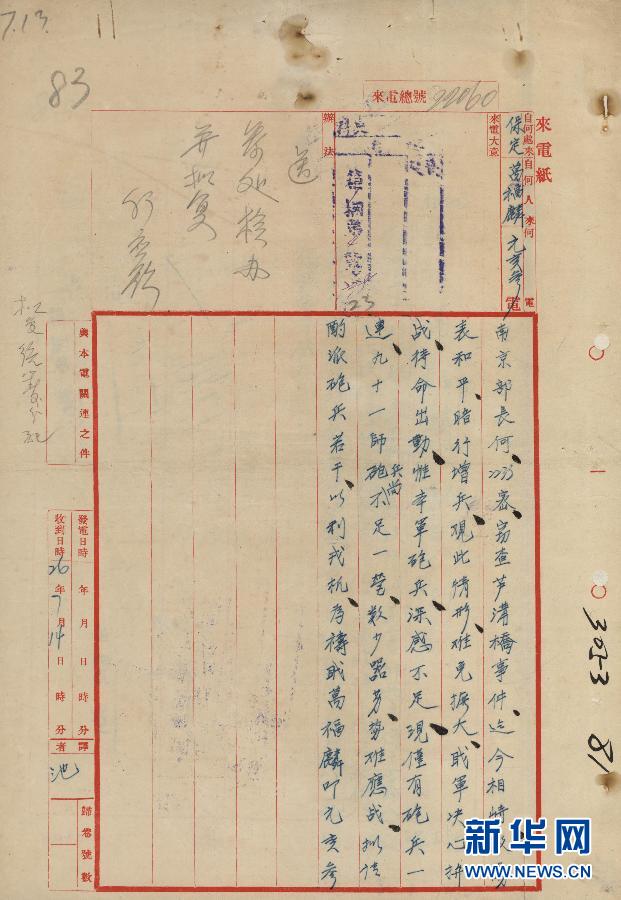 7.13
83
來電紙
自何處來 自何人 來何電
保定 萬福麟 元亥參
來電總號 22060
來電大意
辦法
送
并拟复
23
南京部長何 密窃查芦溝橋事件迄今相持
表和平暗行增兵現此情形难免擴大 職軍决心拚
战待命出動惟本軍砲兵深感不足現僅有砲兵一
連九十一師砲兵尚不足一營数少器劣势难應战拟請
酌派砲兵若干以利戎机为禱职萬福麟叩元亥參
與本電關連之件
發電日時 年 月 日 時 分
收到日時 26年7月14日 時 分
譯者 池
歸卷號數
3053
81
新华网
WWW.NEWS.CN